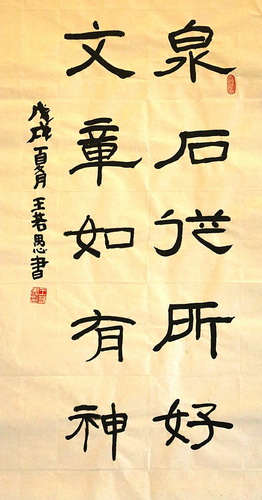 泉石從所好
文章如有神
戊戌夏月王若思書